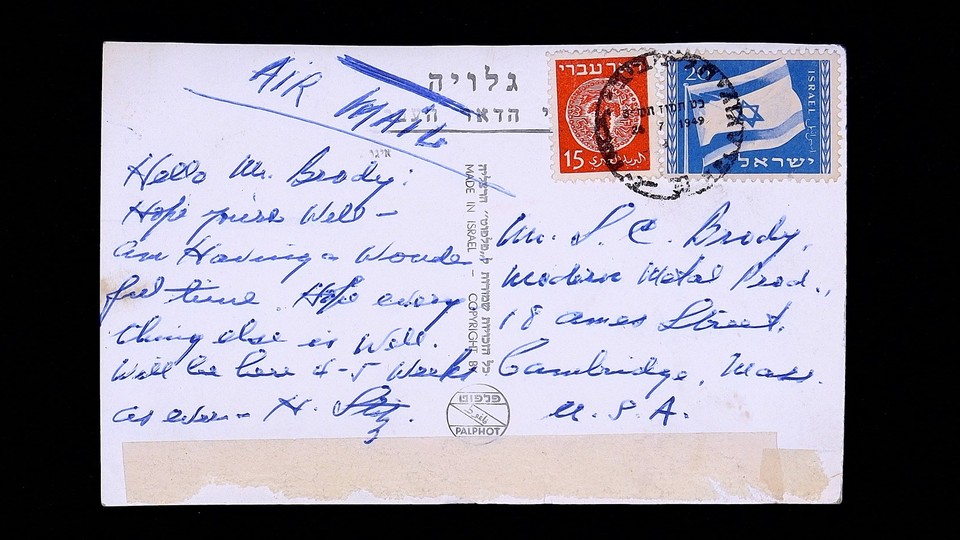 AIR MAIL
גלויה
הדאר
Hello Mr. Brody:
Hope you're Well -
am Having a Wonder
ful time. Hope every
thing else is Well.
Will be here 4-5 Weeks
as ever - H.
MADE IN ISRAEL - COPYRIGHT BY
כל הזכויות שמורות ל"פלפוט" הרצליה
פלפוט
PALPHOT
עברי
15
20
ISRAEL
ישראל
26 7 1949
Mr. S. C. Brody,
Modern Metal Prod.,
18 Ames Street.
Cambridge, Mass.
U. S. A.